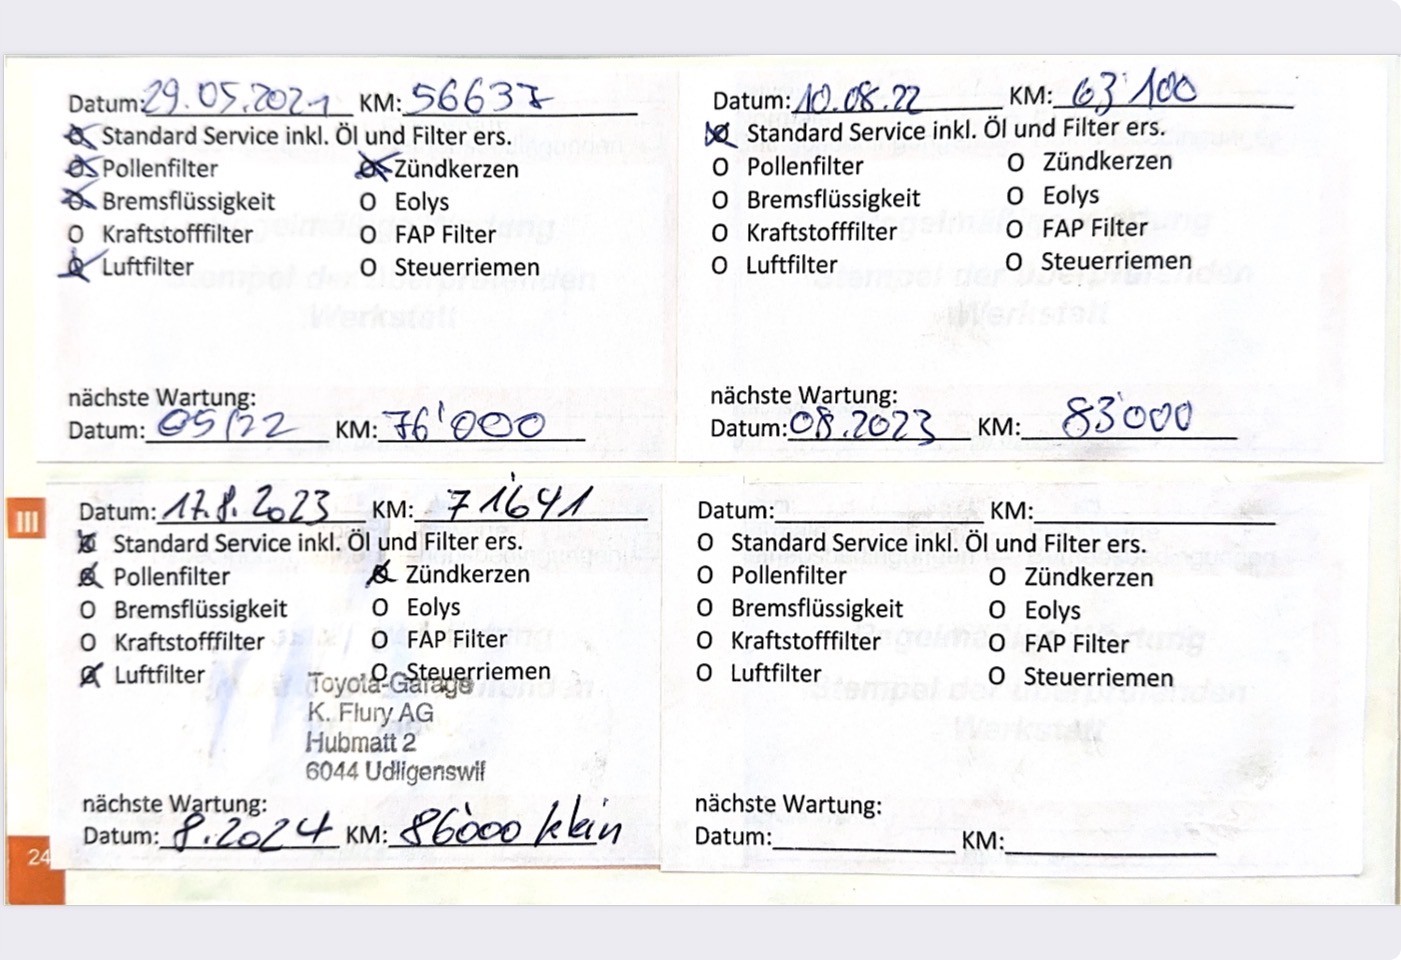 Datum: 29.05.2021 KM: 56637
Standard Service inkl. Öl und Filter ers.
Pollenfilter Zündkerzen
Bremsflüssigkeit O Eolys
O Kraftstofffilter O FAP Filter
Luftfilter O Steuerriemen
Regelmäßige Wartung
Stempel der überprüfenden
Werkstatt
nächste Wartung:
Datum: 05/22 KM: 76'000
Datum: 10.08.22 KM: 63'100
Standard Service inkl. Öl und Filter ers.
O Pollenfilter O Zündkerzen
O Bremsflüssigkeit O Eolys
O Kraftstofffilter O FAP Filter
O Luftfilter O Steuerriemen
Regelmäßige Wartung
Stempel der überprüfenden
Werkstatt
nächste Wartung:
Datum: 08.2023 KM: 83'000
III
Datum: 17.8.2023 KM: 71'641
Standard Service inkl. Öl und Filter ers.
Pollenfilter Zündkerzen
O Bremsflüssigkeit O Eolys
O Kraftstofffilter O FAP Filter
Luftfilter O Steuerriemen
Toyota-Garage
K. Flury AG
Hubmatt 2
6044 Udligenswil
nächste Wartung:
Datum: 8.2024 KM: 86'000 klein
Datum: KM:
O Standard Service inkl. Öl und Filter ers.
O Pollenfilter O Zündkerzen
O Bremsflüssigkeit O Eolys
O Kraftstofffilter O FAP Filter
O Luftfilter O Steuerriemen
Regelmäßige Wartung
Stempel der überprüfenden
Werkstatt
nächste Wartung:
Datum: KM:
24